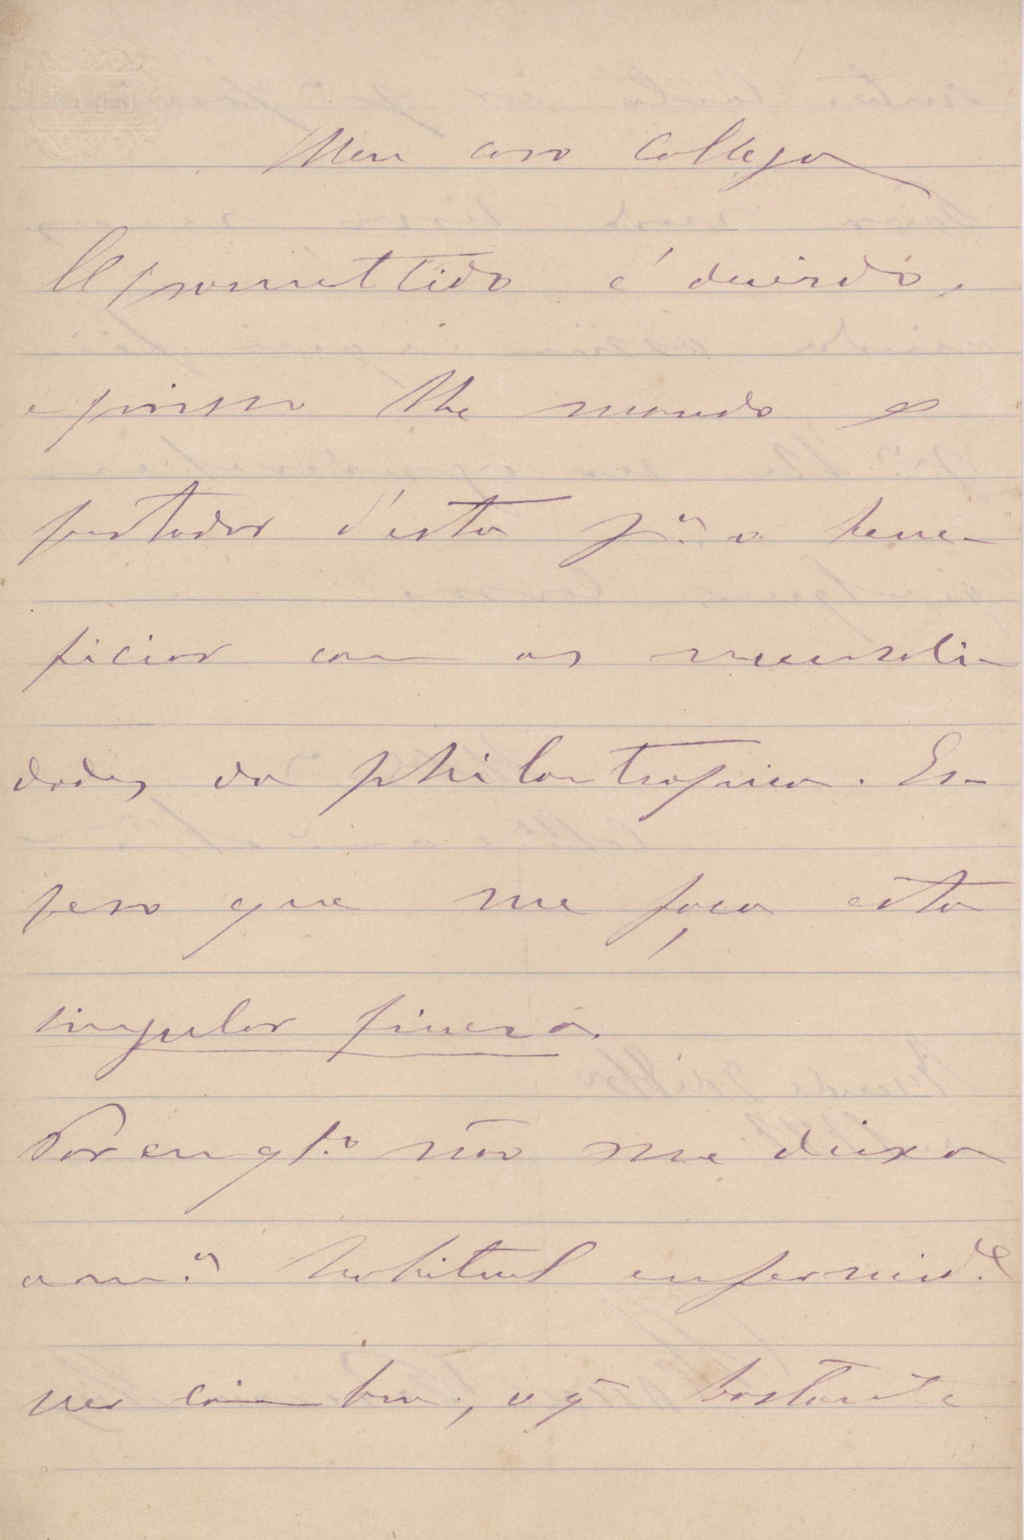 Meu caro Collega
O promettido é devido,
e por isso lhe mando o
portador d'esta p.ª o bene-
ficiar com as mensali-
dades da philantropica. Es-
pero que me faça esta
singular fineza.
Por em q.to não me deixa
a m.ª habitual enfermid.e
ver Coimbra, o q̃ bastante